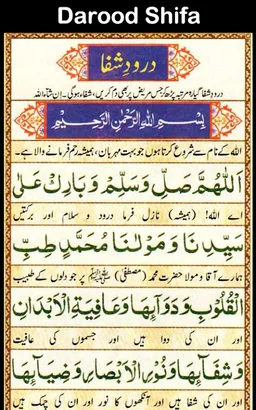 Darood Shifa
درودِ شفا
درودِ شفا گیارہ مرتبہ پڑھ کر جس مریض پر بھی دم کریں، شفاء ہوگی۔ ان شاء اللہ
بِسْمِ اللهِ الرَّحْمٰنِ الرَّحِيْمِ
اللہ کے نام سے شروع کرتا ہوں جو بہت مہربان، ہمیشہ رحم فرمانے والا ہے۔
اَللّٰهُمَّ صَلِّ وَسَلِّمْ وَبَارِكْ عَلٰى
اے اللہ! (ہمیشہ) نازل فرما درود و سلام اور برکتیں
سَيِّدِنَا وَمَوْلٰنَا مُحَمَّدٍ طِبِّ
ہمارے آقا و مولا حضرت محمد (مصطفٰی) ﷺ پر جو دلوں کے طبیب
الْقُلُوْبِ وَدَوَآئِهَا وَعَافِيَةِ الْاَبْدَانِ
اور ان کی دوا ہیں اور جسموں کی عافیت
وَشِفَآئِهَا وَنُوْرِ الْاَبْصَارِ وَضِيَآئِهَا
اور ان کی شفا ہیں اور آنکھوں کا نور اور ان کی چمک ہیں